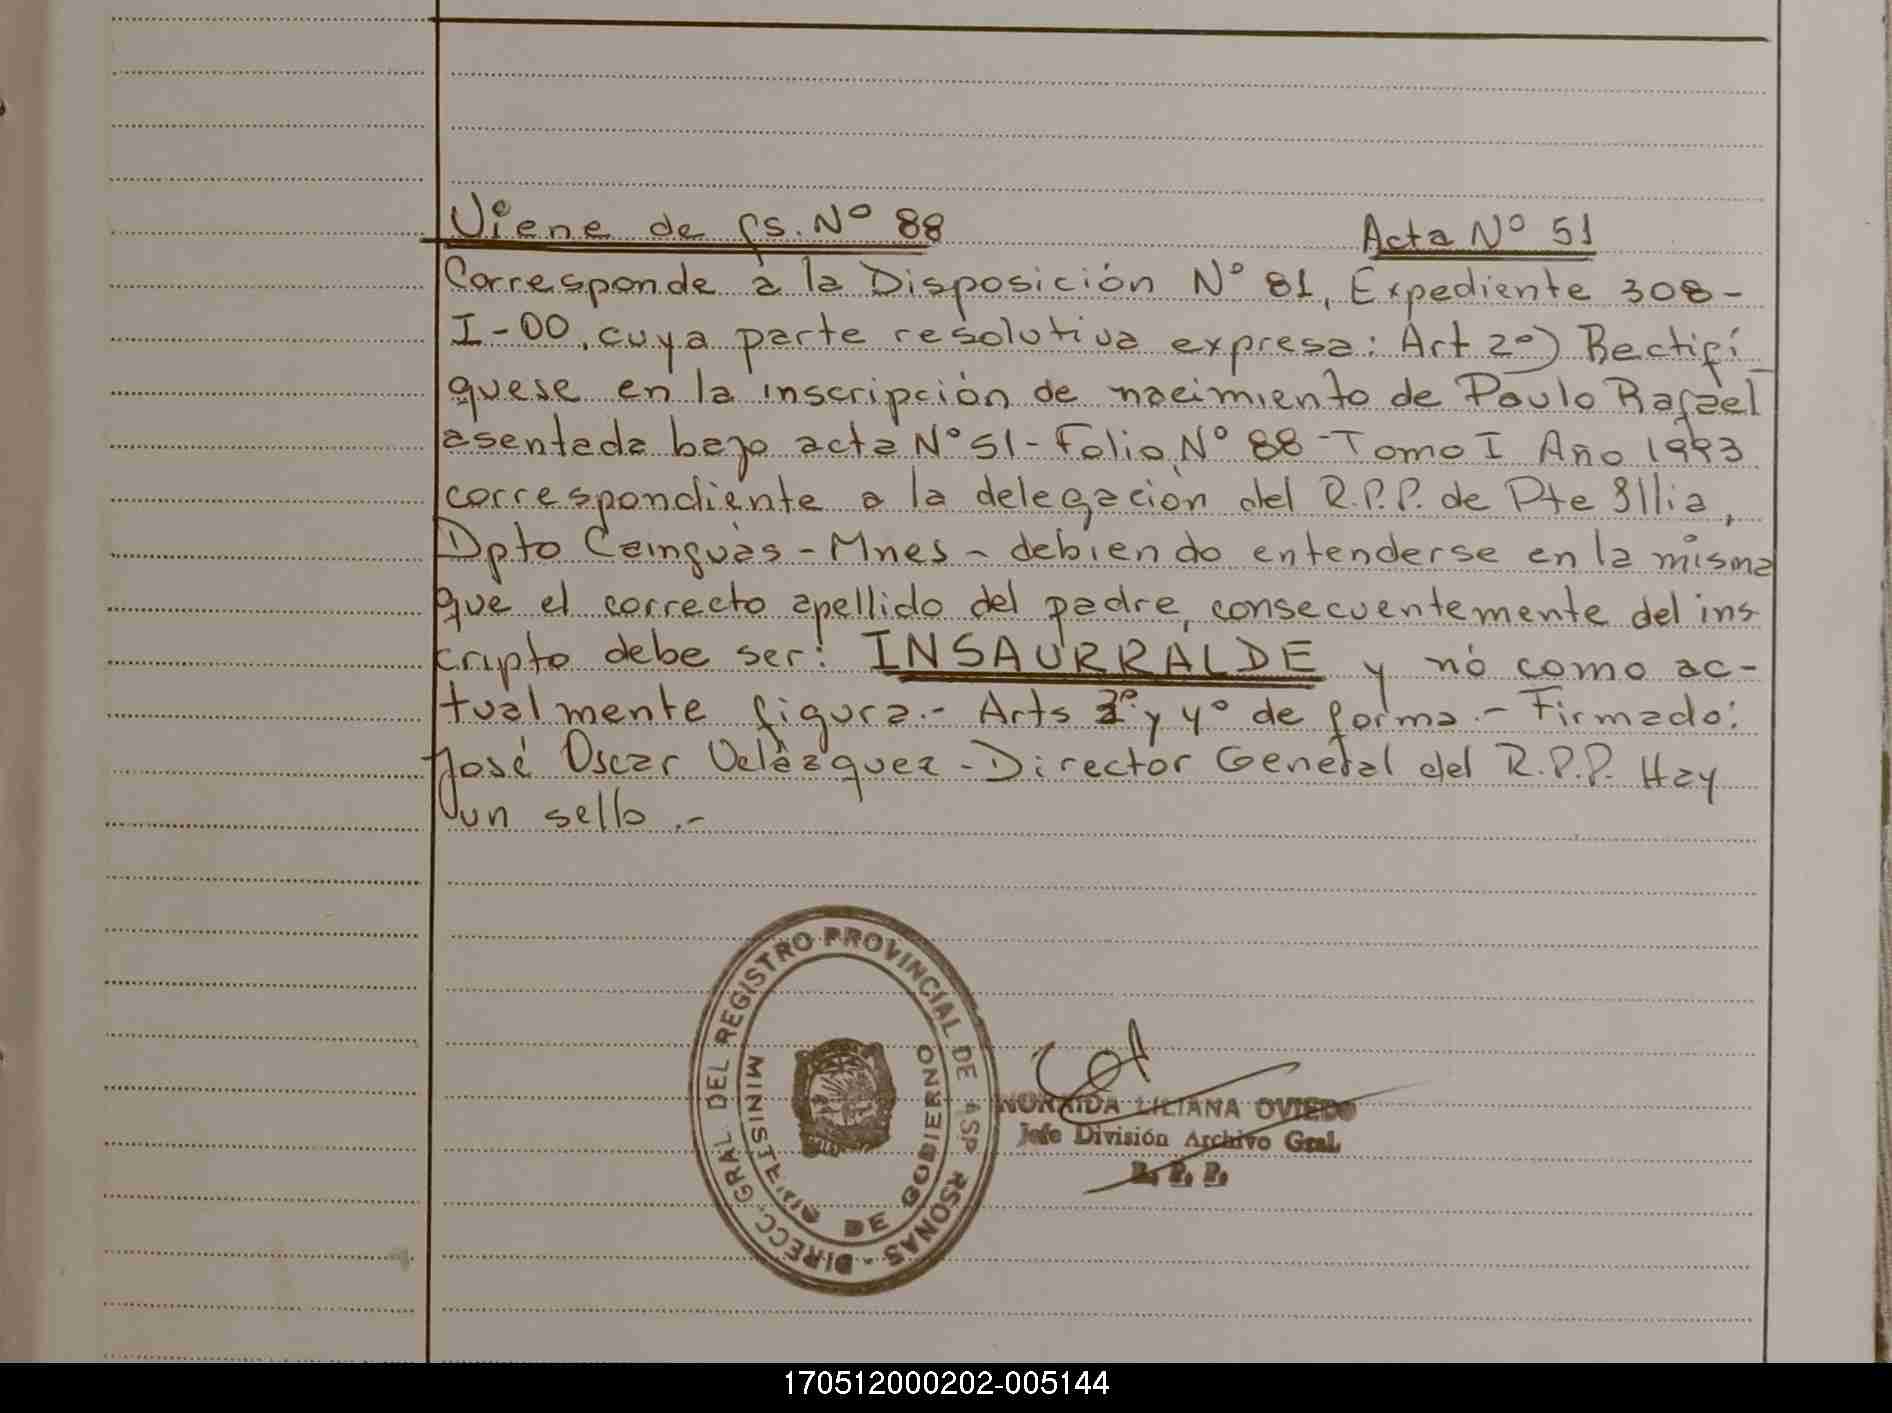 Viene de fs. Nº 88 Acta Nº 51
Corresponde a la Disposición Nº 81, Expediente 308-
I-00, cuya parte resolutiva expresa: Art 2º) Rectifí
quese en la inscripción de nacimiento de Paulo Rafael
asentada bajo acta Nº 51 - Folio Nº 88 - Tomo I Año 1993
correspondiente a la delegación del R.P.P. de Pte Illia,
Dpto Cainguás - Mnes - debiendo entenderse en la misma
que el correcto apellido del padre, consecuentemente del ins
cripto debe ser: INSAURRALDE y nó como ac-
tualmente figura.- Arts 3º y 4º de forma.- Firmado:
José Oscar Velázquez - Director General del R.P.P. Hay
un sello.-
DIRECC. GRAL DEL REGISTRO PROVINCIAL DE LAS PERSONAS -
MINISTERIO DE GOBIERNO
NORAIDA LILIANA OVIEDO
Jefe División Archivo Gral.
R. P. P.
170512000202-005144